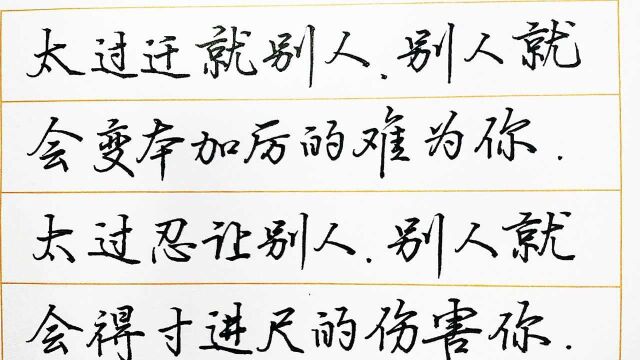 太过迁就别人.别人就
会变本加厉的难为你.
太过忍让别人.别人就
会得寸进尺的伤害你.